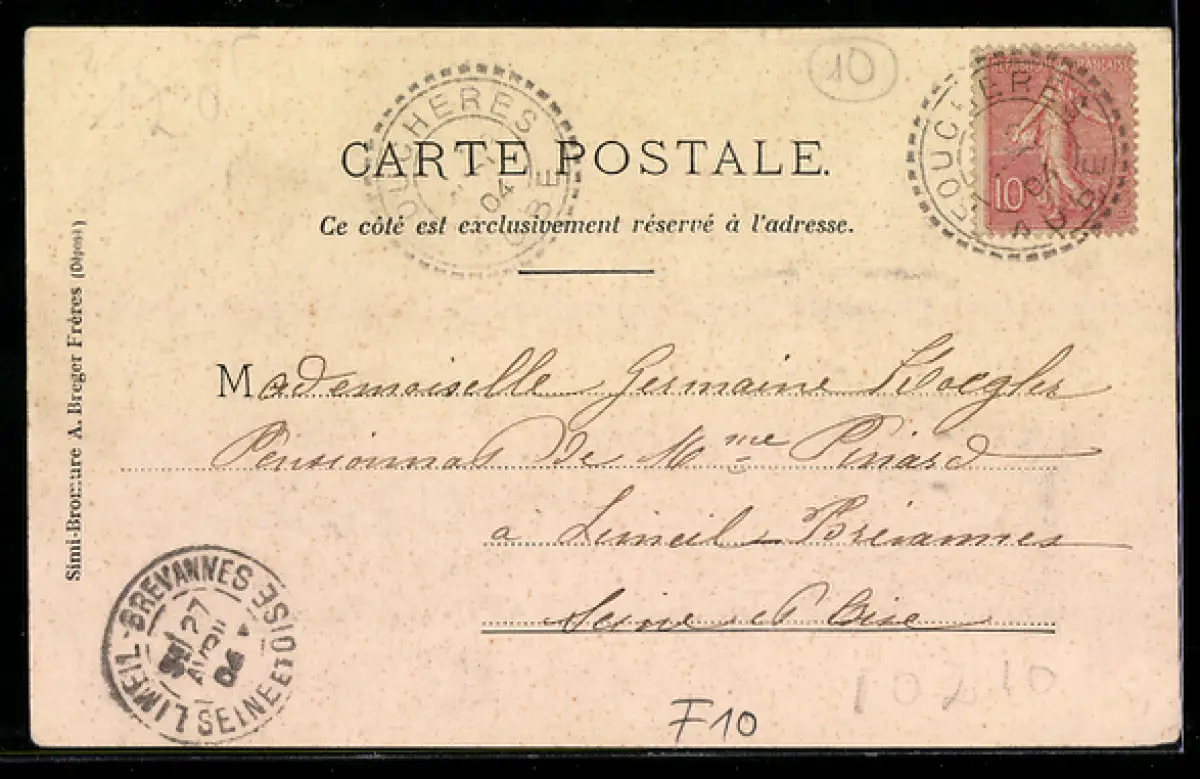 10
FOUCHERES
04
AUBE
RÉPUBLIQUE FRANÇAISE
10
FOUCHERES
04
AUBE
CARTE POSTALE.
Ce côté est exclusivement réservé à l'adresse.
Simi-Bromure A. Breger Frères (Déposé)
Mademoiselle Germaine Koegler
Pensionnat de Mme Pinard
a Limeil-Brévannes
Seine et Oise
LIMEIL-BREVANNES
27
AVRIL
04
SEINE ET OISE
10210
F10